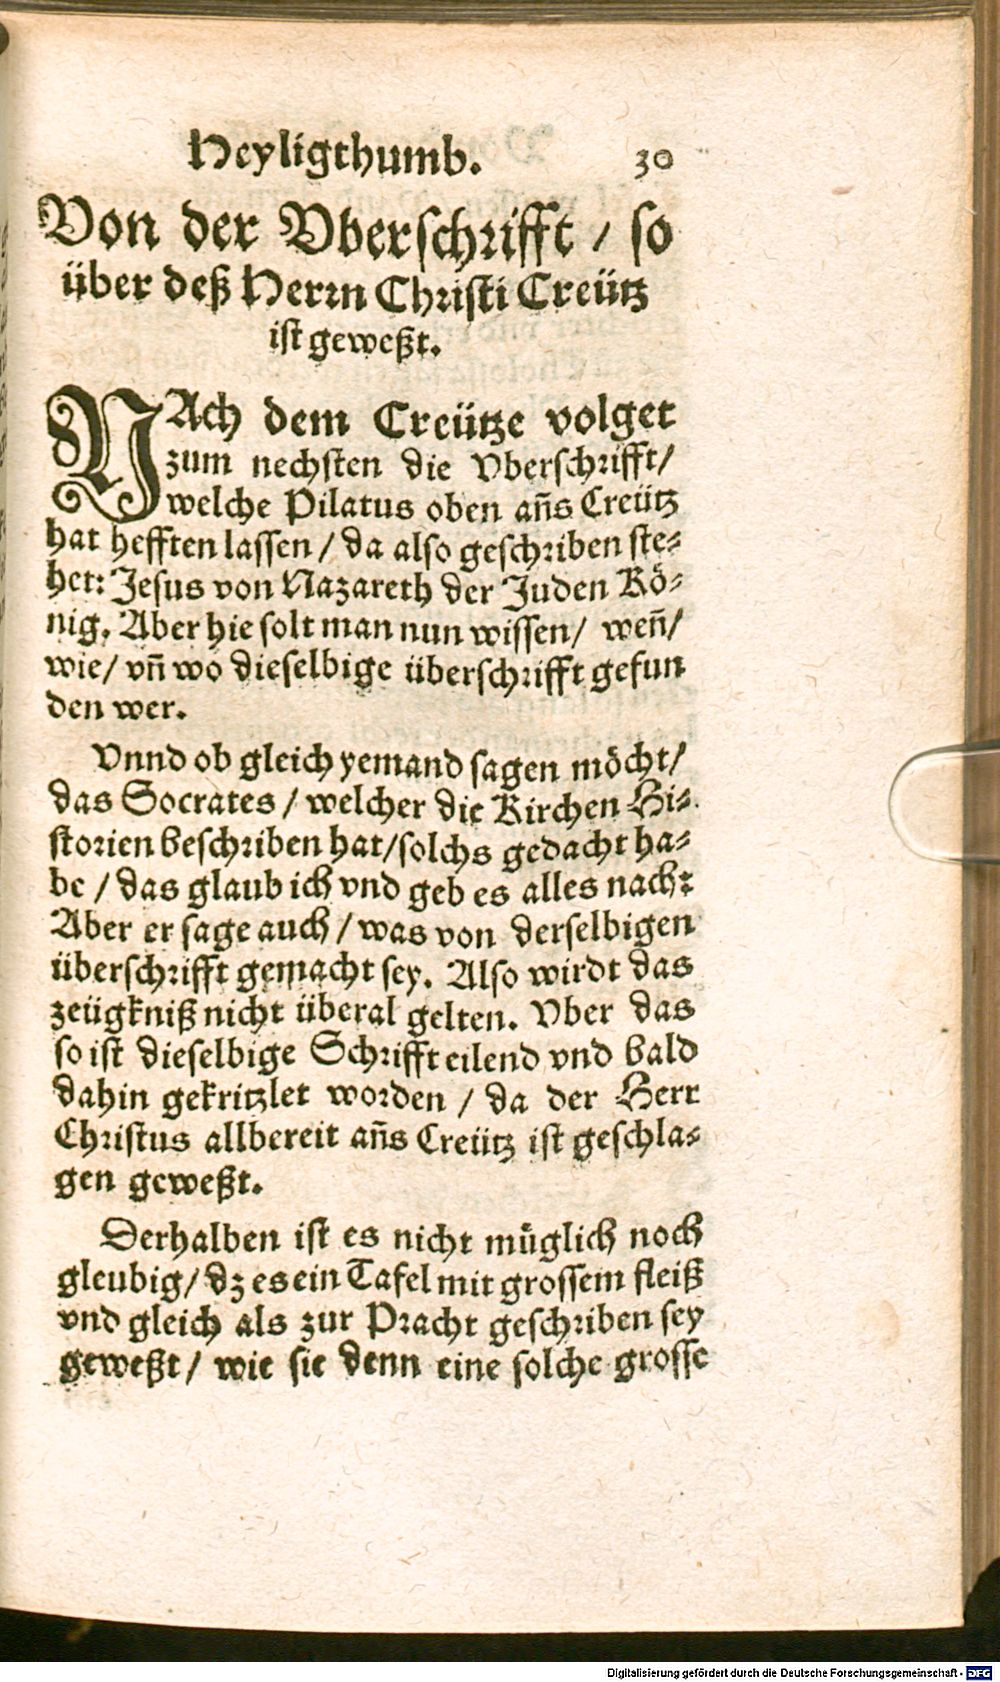 Heyligthumb. 30
Von der Vberschrifft / so
über deß Herrn Christi Creütz
ist geweßt.
NAch dem Creütze volget
zum nechsten die Vberschrifft/
welche Pilatus oben an̄s Creütz
hat hefften lassen / da also geschriben ste-
het: Jesus von Nazareth der Juden Kö-
nig. Aber hie solt man nun wissen/ wen̄/
wie/ vn̄ wo dieselbige überschrifft gefun
den wer.
Vnnd ob gleich yemand sagen möcht/
das Socrates / welcher die Kirchen Hi-
storien beschriben hat/solchs gedacht ha-
be / das glaub ich vnd geb es alles nach:
Aber er sage auch / was von derselbigen
überschrifft gemacht sey. Also wirdt das
zeügkniß nicht überal gelten. Vber das
so ist dieselbige Schrifft eilend vnd bald
dahin gekritzlet worden / da der Herr
Christus allbereit an̄s Creütz ist geschla-
gen geweßt.
Derhalben ist es nicht müglich noch
gleubig/ dz es ein Tafel mit grossem fleiß
vnd gleich als zur Pracht geschriben sey
geweßt / wie sie denn eine solche grosse
Digitalisierung gefördert durch die Deutsche Forschungsgemeinschaft - DFG